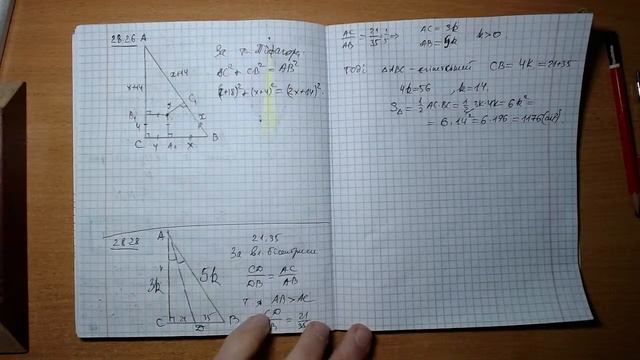 28.26
A
За т. Піфагор.
AC² + CB² = AB²
x+14
x+14
C₁
B₁
x
4
C 4 A₁ x B
28.28
21,35
A
За вл. бісектриси
CD/DB = AC/AB
3k
5k
т. я AB>AC
C 21 D 35 B
= 21/35
AC/AB = 21/35 =
AC = 3k
AB = 5k
k>0
Тоді ΔABC – єгипетський CB = 4k = 21+35
4k=56, k=14.
S△ = 1/2 AC·BC = 1/2 3k·4k = 6k² =
= 6·14² = 6·196 = 1176 (см²)